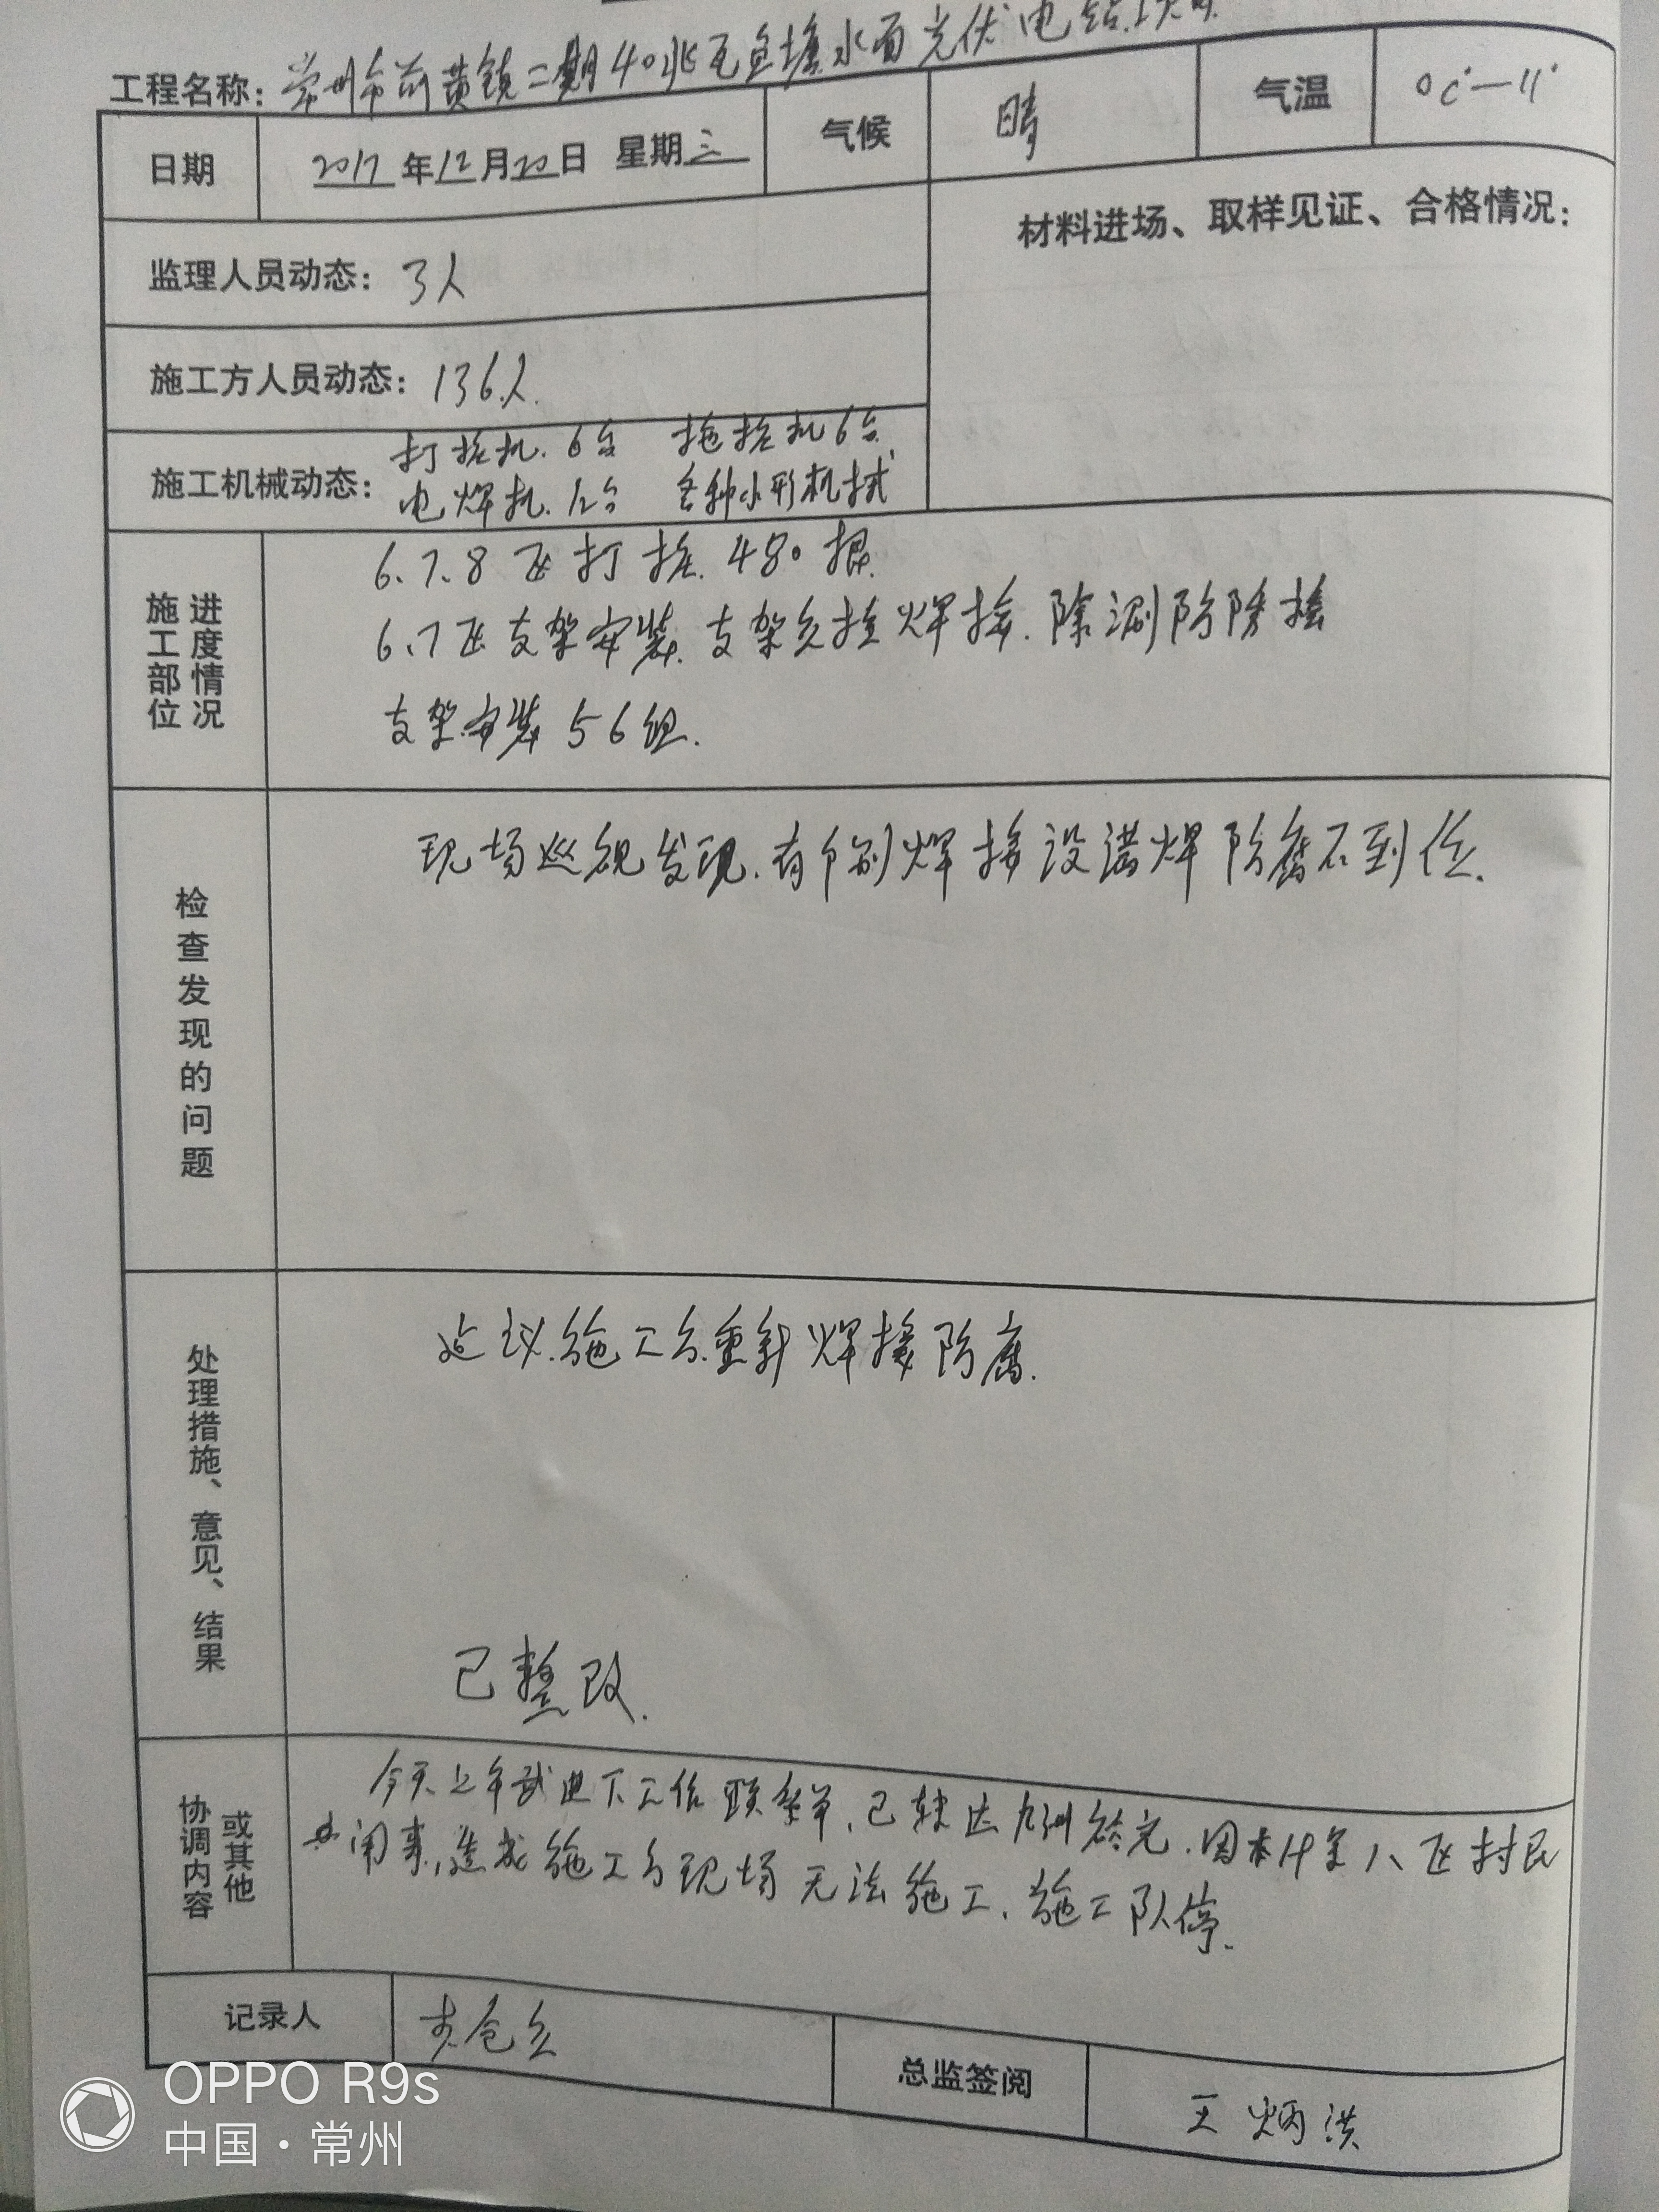 工程名称：常州市前黄镇二期40兆瓦鱼塘水面光伏电站工
日期 2017年12月20日 星期三 气候 晴 气温 0℃—11°
材料进场、取样见证、合格情况：
监理人员动态：3人
施工方人员动态：136人.
施工机械动态：打桩机.6台 拖桩机6台
电焊机.12台 各种小形机械
施工部位 进度情况
6.7.8区打桩.480根.
6.7区支架安装.支架与桩焊接.除 防
支架安装56组.
检查发现的问题
现场巡视发现.有个别焊接没满焊防腐不到位.
处理措施、意见、结果
建议.施工方.重新焊接防腐.
已整改.
协调内容 或其他
今天上午 进下工作联系单，已转达九洲 .因 八区村民
闹事，造成施工方现场无法施工、施工队停.
记录人
总监签阅 王炳洪
OPPO R9s
中国·常州